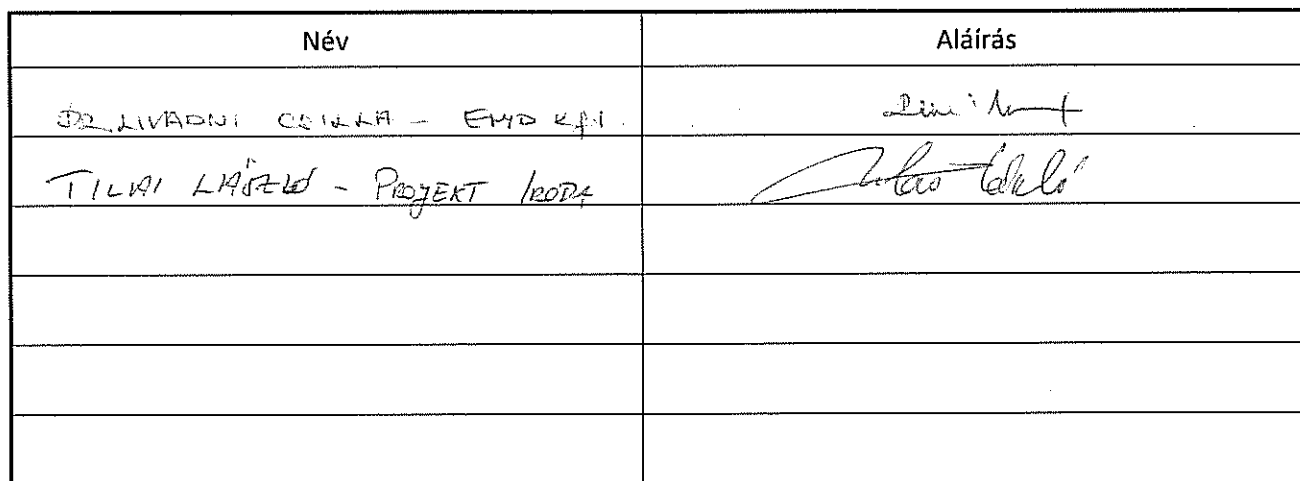 Név Aláírás
DR LIVADNI CSILLA - EMD Kft.
TILAI LÁSZLÓ - PROJEKT IRODA